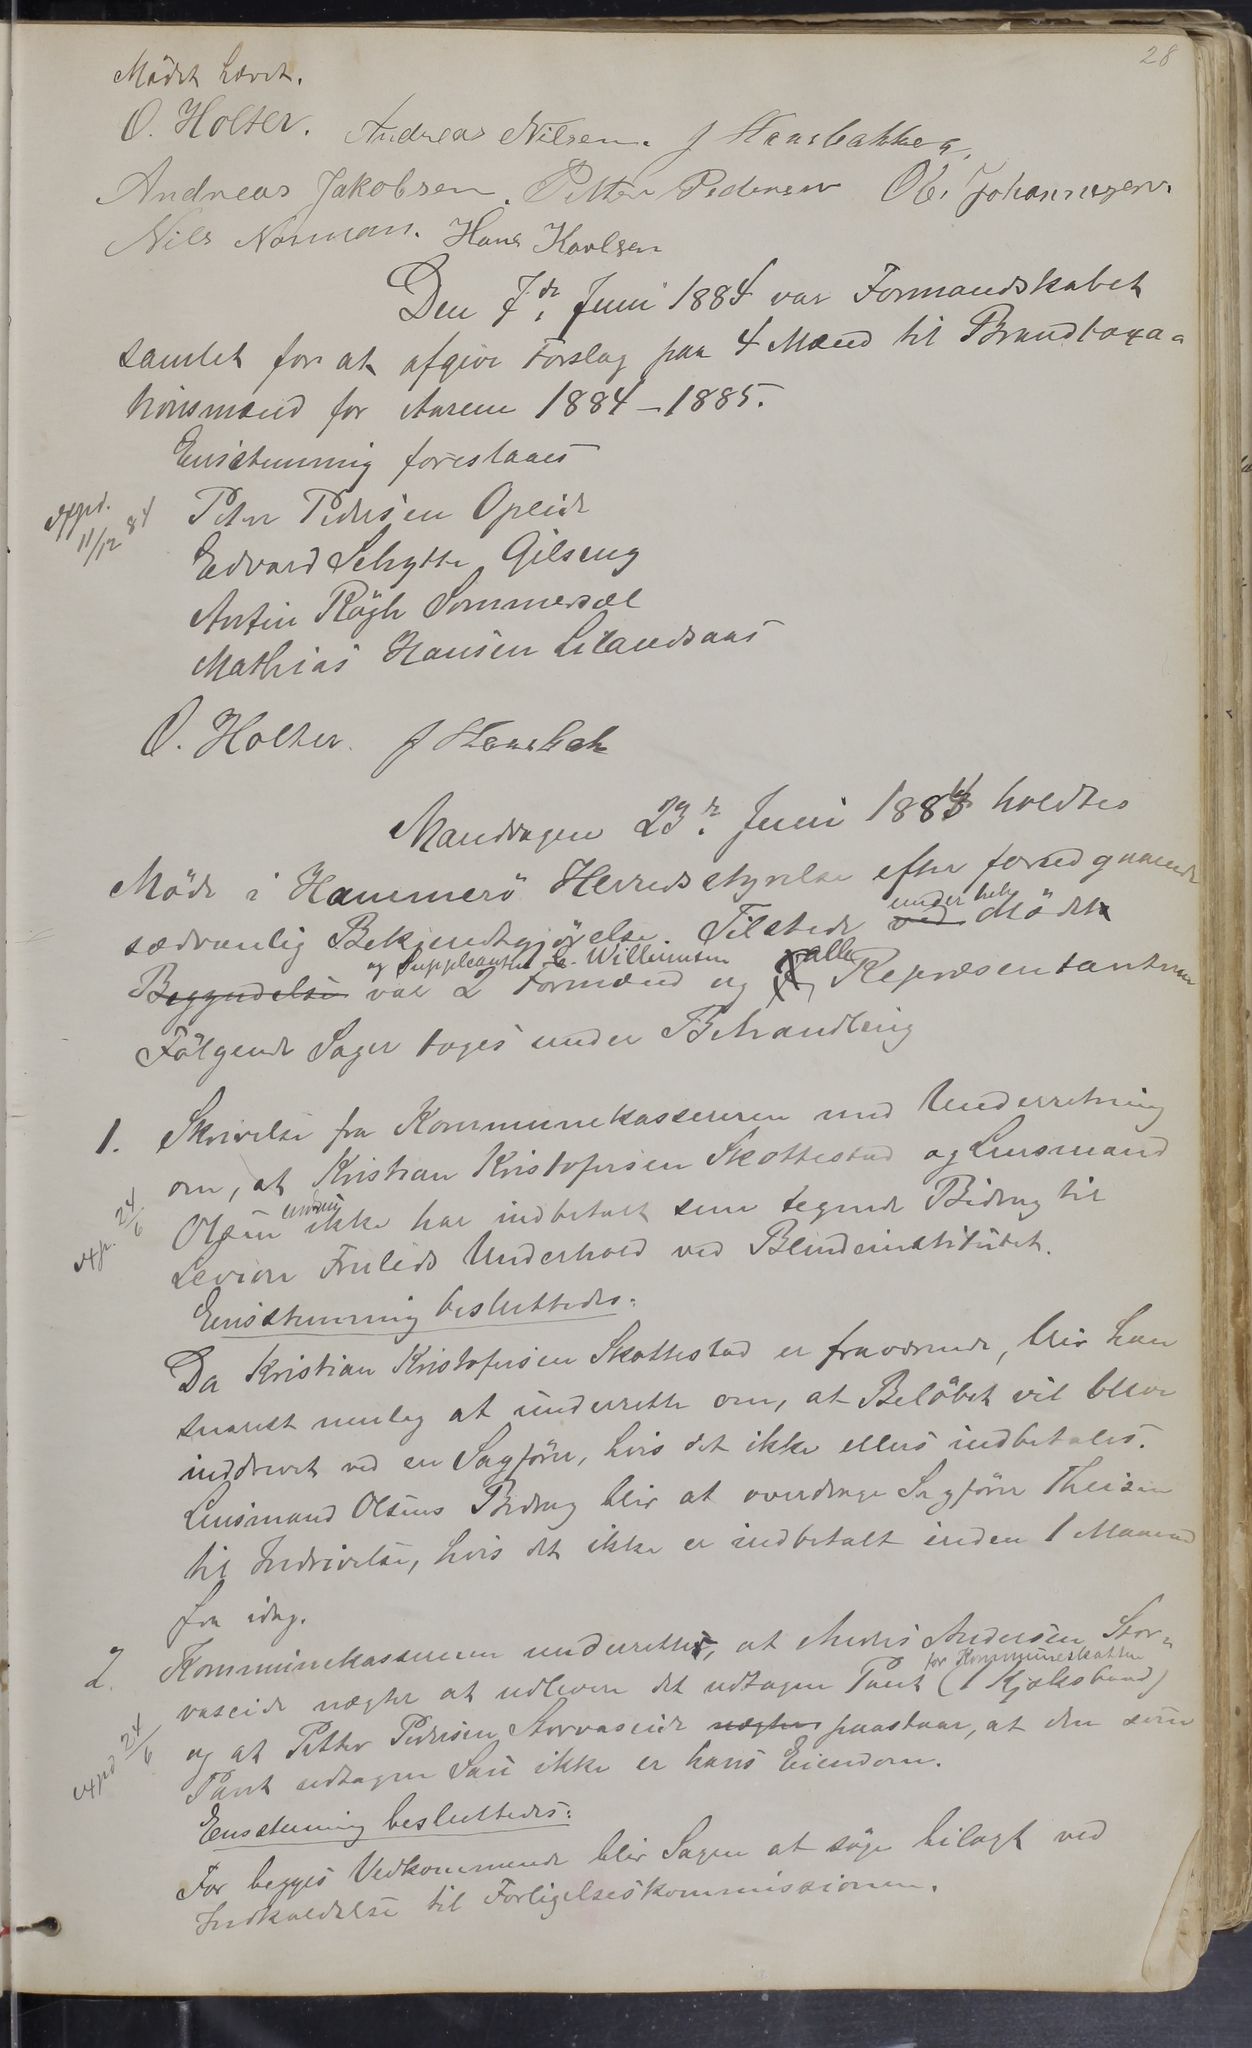 28
Mödet hævet.
O. Holter. Andreas Nilsen. J Haasbakken.
Andreas Jakobsen. Petter Pedersen Ole Johannesen.
Nils Norman. Hans Karlsen
Den 7de Juni 1884 var Formandskabet
samlet for at afgive Forslag paa 4 Mænd til Brandtaxa-
tionsmænd for Aarene 1884-1885.
Enstemmig foreslaaes
expd. 11/12 84
Peter Pedersen Opeide
Edvard Schytte Gilseng
Antin Rögh Sommersæl
Mathias Hansen Lilandsaas
O. Holter. J
Mandagen 23de Juni 1884 holdtes
Möde i Hammerö Herredsstyrelse efter foregaaende
sædvanlig Bekjendtgjörelse. Tilstede ved under hele Mödet
Begyndelse var 2 Formænd og Suppleanten Willumsen og alle Repræsentanterne
Fölgende Sager toges under Behandling
1. Skrivelse fra Kommunekassereren med Underretning
om, at Kristian Kristofersen Skottestad og Lensmand
exp. 24/6
Olsen endnu ikke har indbetalt sine tegnede Bidrag til
Underhold ved Blindeinstitutet.
Enstemmig besluttedes:
Da Kristian Kristofersen Skottestad er fraværende, blir han
snarest mulig at underrette om, at Belöbet vil blive
inddrevet ved en Sagförer, hvis det ikke ellers indbetales.
Lensmand Olsens Bidrag blir at overdrage Sagförer Theisen
til Inddrivelse, hvis det ikke er indbetalt inden 1 Maaned
fra idag.
2. Kommunekassereren underretter, at Andreas Andersen Stor-
vaseide nægter at udlevere det udtagne Pant for Kommuneskatten (1 Kjöksbaad)
expd 24/6
og at Petter Pedersen Storvaseide nægter paastaar, at den som
Pant udtagne Sau ikke er hans Eiendom.
Enstemmig besluttedes:
For begges Vedkommende blir Sagen at söge bilagt ved
Indkaldelse til Forligelseskommissionen.